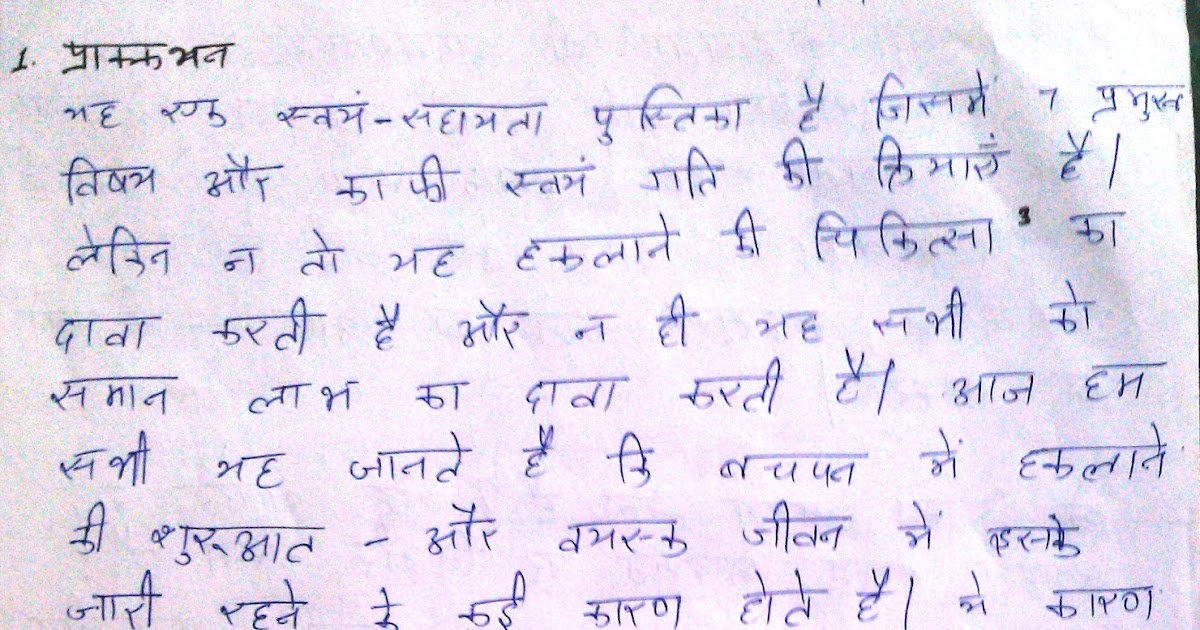 1. प्राक्कथन
यह एक स्वयं-सहायता पुस्तिका है जिसमें 7 प्रमुख
विषय और काफी स्वयं गति की क्रियाएं है।
लेकिन न तो यह हकलाने की चिकित्सा 3 का
दावा करती है और न ही यह सभी को
समान लाभ का दावा करती है। आज हम
सभी यह जानते है कि बचपन में हकलाने
की शुरूआत - और वयस्क जीवन में इसके
जारी रहने के कई कारण होते है। ये कारण